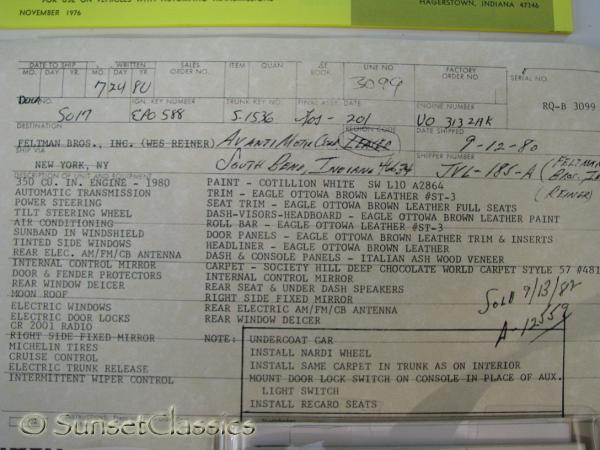 FOR USE ON VEHICLES WITH AUTOMATIC TRANSMISSIONS
NOVEMBER 1976
HAGERSTOWN, INDIANA 47346
DATE TO SHIP WRITTEN SALES ORDER NO. ITEM QUAN BOOK LINE NO. FACTORY ORDER NO. SERIAL NO.
MO. DAY YR. MO. DAY YR.
7 24 80 3099 RQ-B 3099
NO. IGN. KEY NUMBER TRUNK KEY NO. FINAL ASSY. DATE ENGINE NUMBER
5017 S-1536 201
DESTINATION REGION CODE DATE SHIPPED
FELTMAN BROS., INC. (WES REINER) AVANTI MOTOR CORP. 9-12-80
SHIP VIA SHIPPER NUMBER
NEW YORK, NY SOUTH BEND, INDIANA 46634 JVL-185-A (FELTMAN BROS. REINER)
DESCRIPTION OF UNIT AND EQUIPMENT
350 CU. IN. ENGINE - 1980 PAINT - COTILLION WHITE SW L10 A2864
AUTOMATIC TRANSMISSION TRIM - EAGLE OTTOWA BROWN LEATHER #ST-3
POWER STEERING SEAT TRIM - EAGLE OTTOWA BROWN LEATHER FULL SEATS
TILT STEERING WHEEL DASH-VISORS-HEADBOARD - EAGLE OTTOWA BROWN LEATHER PAINT
AIR CONDITIONING ROLL BAR - EAGLE OTTOWA BROWN LEATHER #ST-3
SUNBAND IN WINDSHIELD DOOR PANELS - EAGLE OTTOWA BROWN LEATHER TRIM & INSERTS
TINTED SIDE WINDOWS HEADLINER - EAGLE OTTOWA BROWN LEATHER
REAR ELEC. AM/FM/CB ANTENNA DASH & CONSOLE PANELS - ITALIAN ASH WOOD VENEER
INTERNAL CONTROL MIRROR CARPET - SOCIETY HILL DEEP CHOCOLATE WORLD CARPET STYLE 57 #481
DOOR & FENDER PROTECTORS INTERNAL CONTROL MIRROR
REAR WINDOW DEICER REAR SEAT & UNDER DASH SPEAKERS
MOON ROOF RIGHT SIDE FIXED MIRROR
ELECTRIC WINDOWS REAR ELECTRIC AM/FM/CB ANTENNA
ELECTRIC DOOR LOCKS REAR WINDOW DEICER
SOLD 9/13/82
A-12559
CR 2001 RADIO
RIGHT SIDE FIXED MIRROR NOTE: UNDERCOAT CAR
MICHELIN TIRES INSTALL NARDI WHEEL
CRUISE CONTROL INSTALL SAME CARPET IN TRUNK AS ON INTERIOR
ELECTRIC TRUNK RELEASE MOUNT DOOR LOCK SWITCH ON CONSOLE IN PLACE OF AUX.
INTERMITTENT WIPER CONTROL LIGHT SWITCH
INSTALL RECARO SEATS
© SunsetClassics